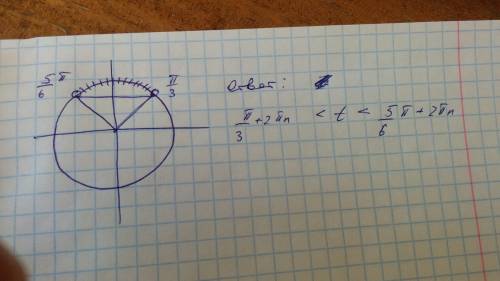 5/6 π
π/3
Ответ:
π/3 + 2πn < t < 5/6 π + 2πn